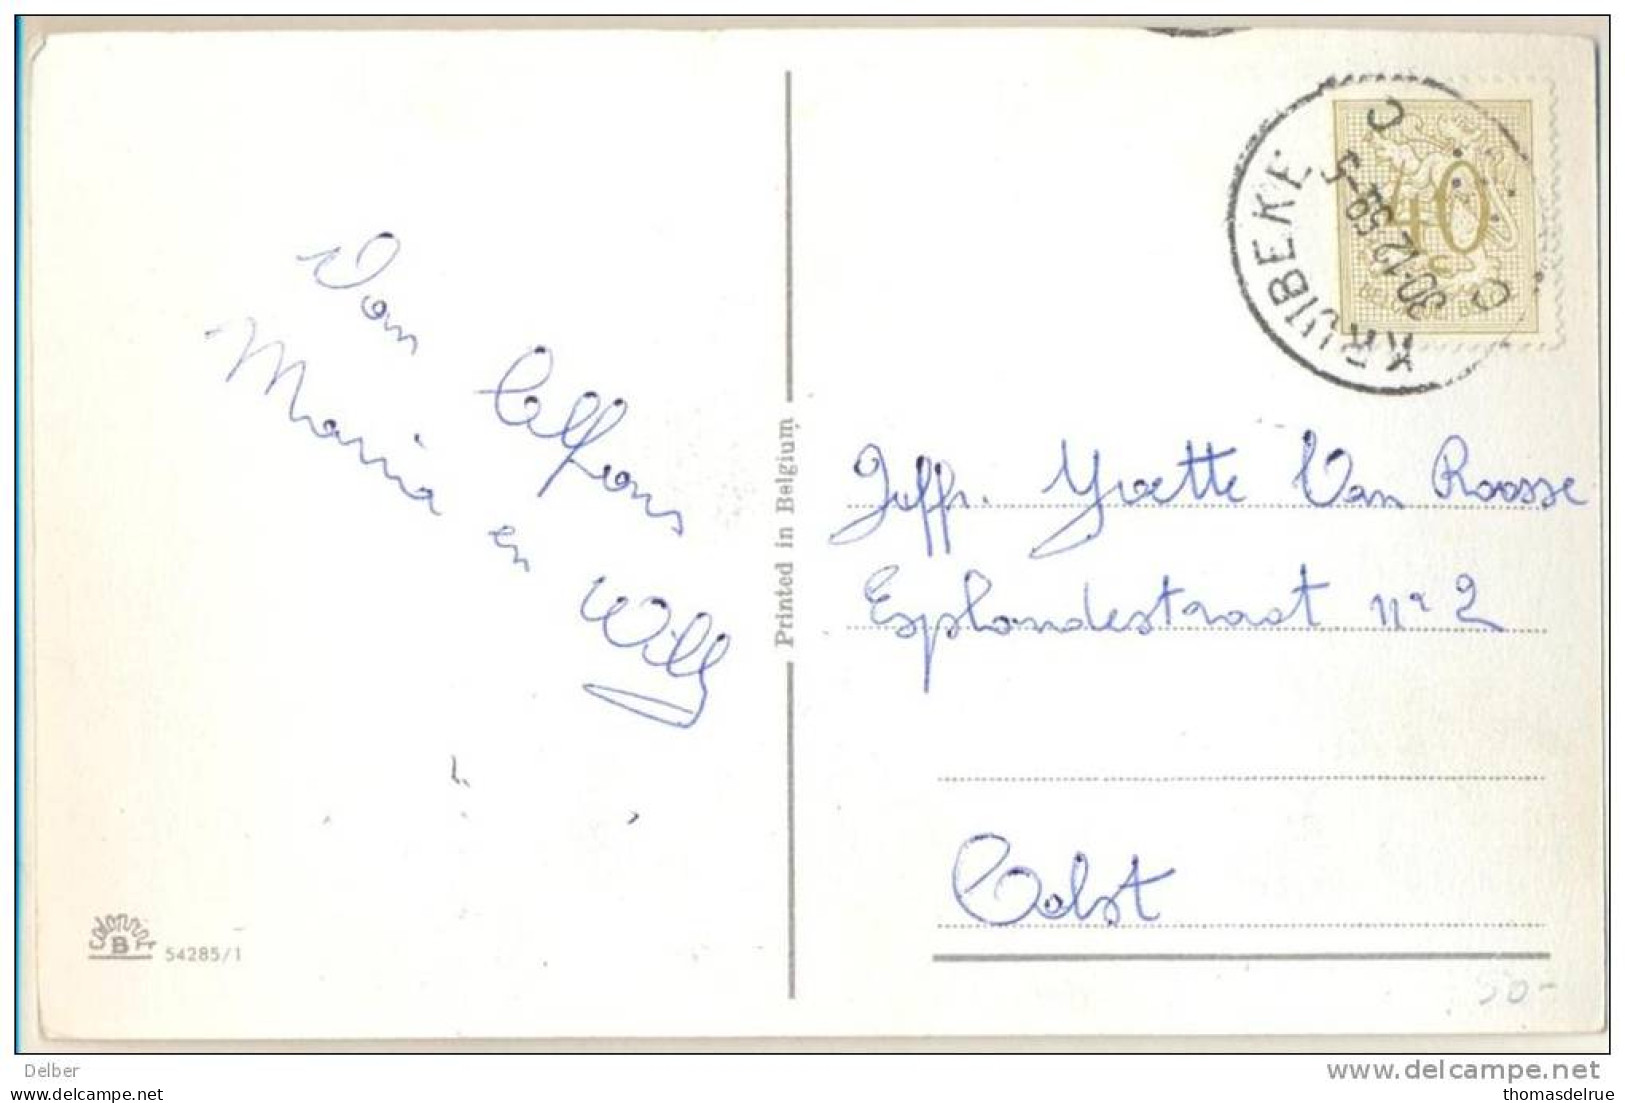 Van Alfons
Maria en Willy
Printed in Belgium
54285/1
KRUIBEKE
30-12 58-5
C C
40
Juffr. Yvette Van Roosse
Esplandestraat nr 2
Aalst
50-
Delber
www.delcampe.net
thomasdelrue